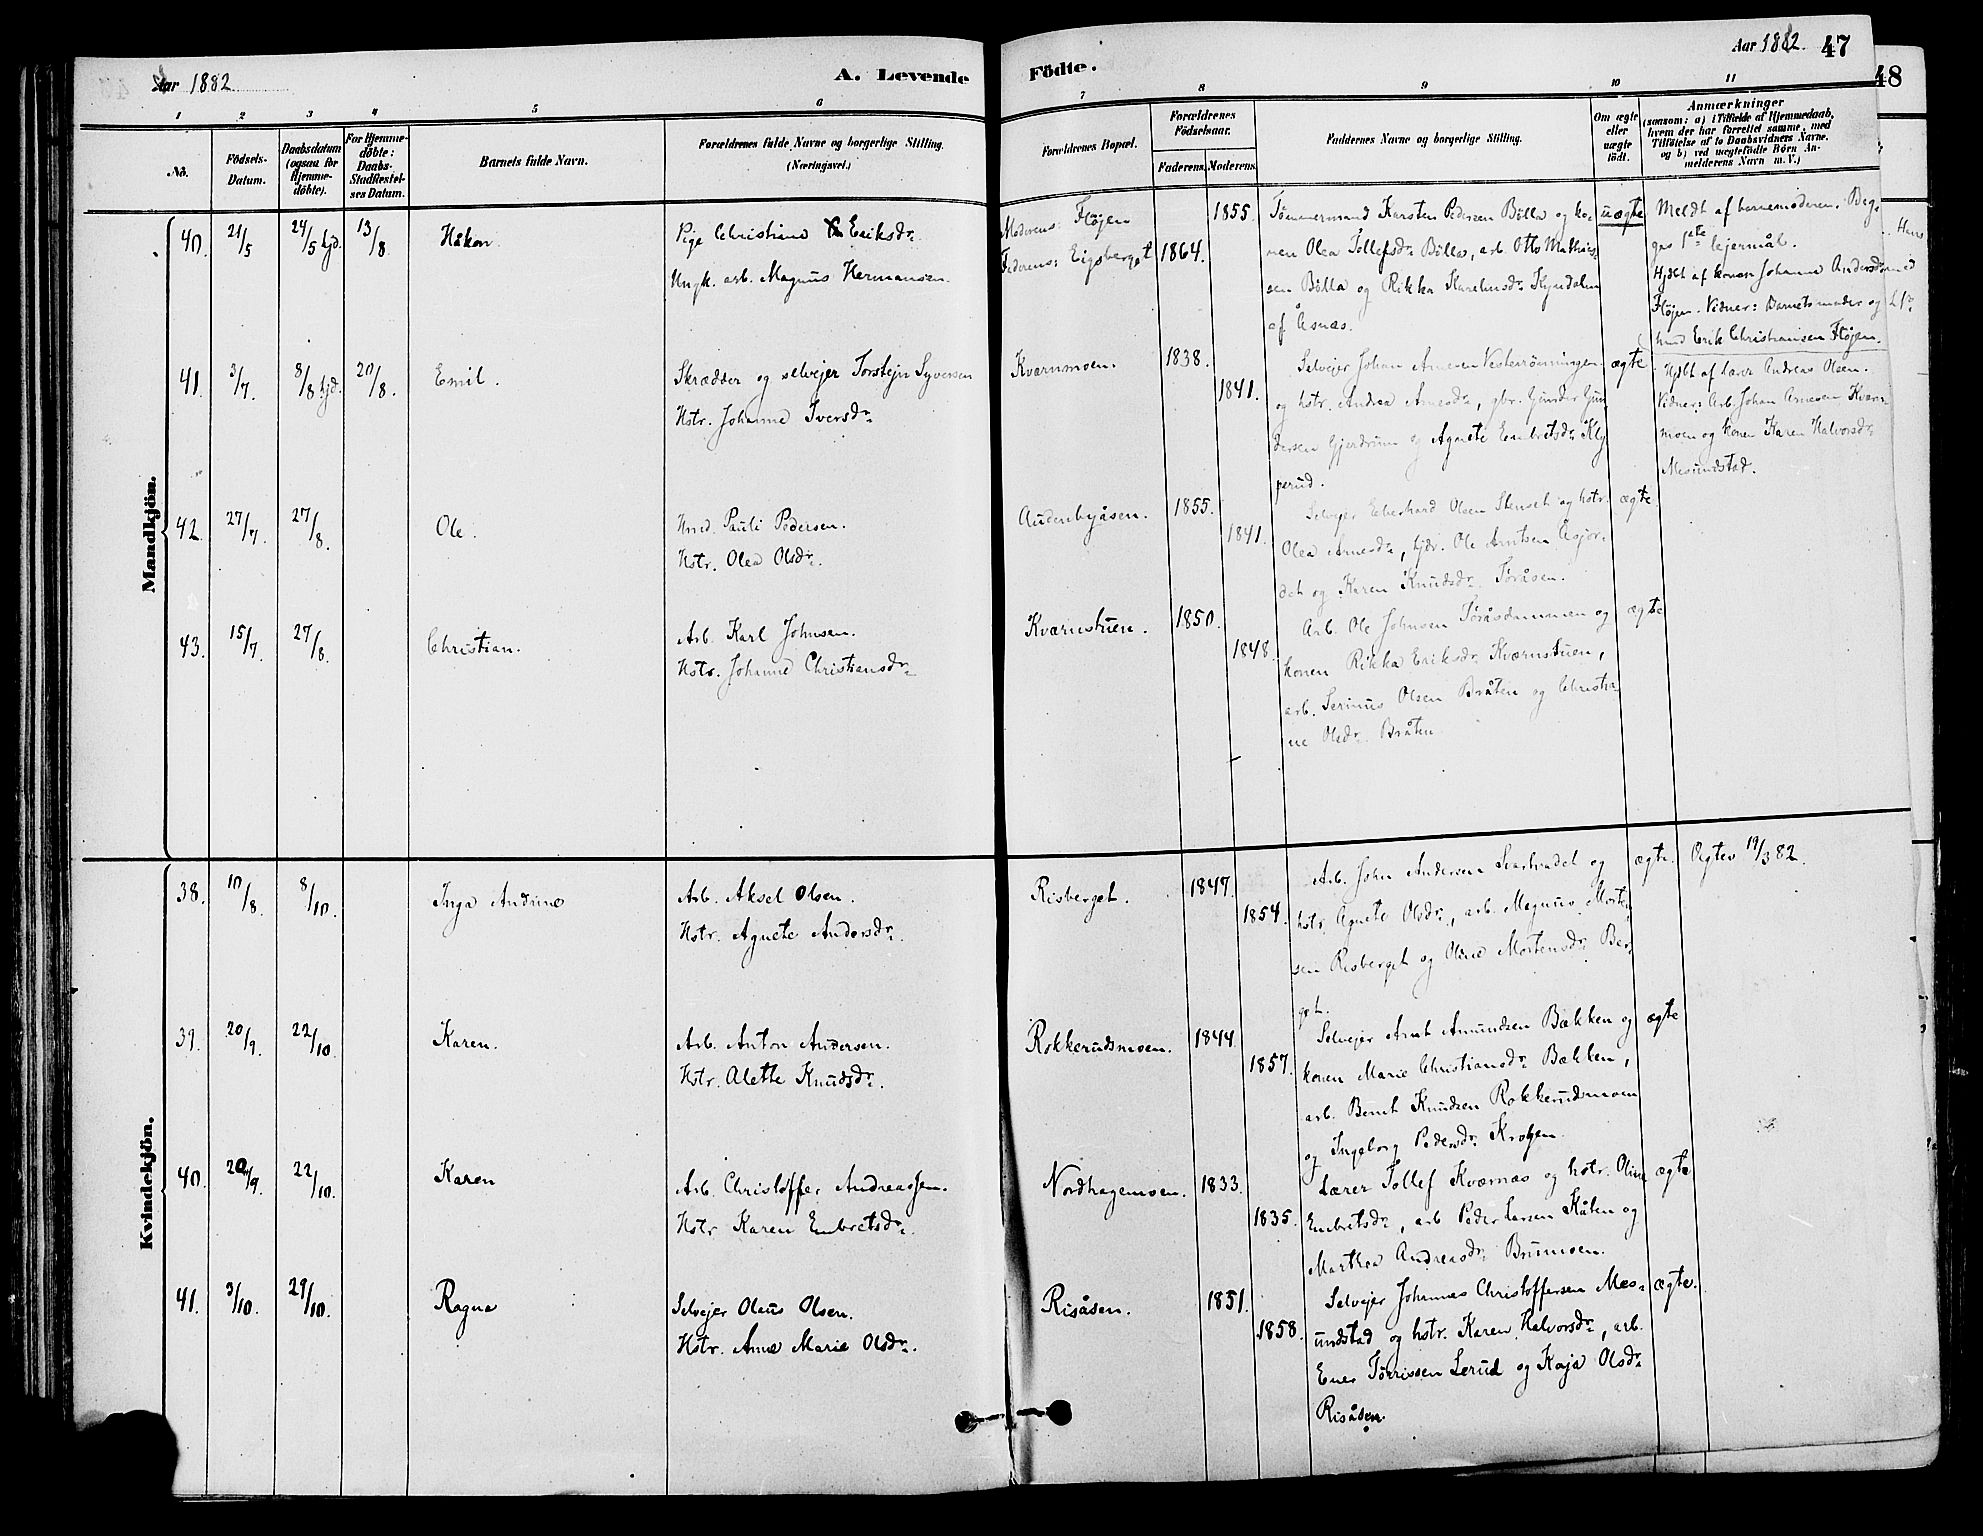 Aar 1882
A. Levende Födte.
Aar 1882.
47
48
1 2 3 4 5 6 7 8 9 10 11
No.
Födsels-Datum.
Daabsdatum (ogsaa for Hjemme-döbte).
For Hjemme-döbte: Daabs-Stadfæstel-ses Datum.
Barnets fulde Navn.
Forældrenes fulde Navne og borgerlige Stilling. (Næringsvei.)
Forældrenes Bopæl.
Forældrenes Födselsaar.
Faderens. Moderens.
Faddernes Navne og borgerlige Stilling.
Om ægte eller uægte födt.
Anmærkninger
(saasom: a) i Tilfælde af Hjemmedaab,
hvem der har forrettet samme, med
Tilföielse af to Daabsvidners Navne.
og b) ved uægtefödte Börn An-
melderens Navn m. V.)
Mandkjön.
40. 21/5 24/5 hjd. 13/8 Håkon.
Pige Christiane Eriksdr.
Ungk. arb. Magnus Hermansen.
Moderens: Fløjen
Faderens: Eigsberget
1855.
1864.
Tømmermand Karsten Pedersen Bölla og ko-
nen Olea Tollefsdr. Bölla, arb. Otto Mathis-
sen Bölla og Rikka Kareliusdr. Kyndalen
af Åsnæs.
uægte
Meldt af barnemoderen. Beg-
ges 1ste lejermål.
Hjdbt af konen Johanne Andersdr.
Fløjen. Vidner: Barnets moder og
Erik Christiansen Fløjen.
41. 3/7. 8/8 hjd. 20/8. Emil.
Skrædder og selvejer Torstejn Syversen
Hstr. Johanne Iversdr.
Kværnmoen.
1838.
1841.
Selvejer Johan Arnesen Vesterrönningen
og hstr. Andrea Arnesdr., gbr. Gunder Gun-
dersen Gjerdrum og Agnete Embretsdr. Kly
perud.
ægte
Hjdbt af lærer Andreas Olsen.
Vidner: Arb. Johan Arnesen Kværn-
moen og konen Karen Halvorsdr.
Mesundstad.
42. 27/7. 27/8. Ole.
Hmd. Pauli Pedersen.
Hstr. Olea Olsdr.
Audenbyåsen.
1855.
1841.
Selvejer Eberhard Olsen Stenset og hstr.
Olea Arnesdr., tjdr. Ole Arntsen Åsjor-
det og Karen Knudsdr. Töråsen.
ægte.
43. 15/7. 27/8. Christian.
Arb. Karl Johnsen.
Hstr. Johanne Christiansdr.
Kværnstuen.
1850.
1848.
Arb. Ole Johnsen Töråsdammen og
konen Rikka Eriksdr. Kværnstuen,
arb. Serinus Olsen Bråten og Christia-
ne Olsdr. Bråten.
ægte
Kvindekjön.
38. 10/8. 8/10. Inga Andrine
Arb. Aksel Olsen.
Hstr. Agnete Andersdr.
Risberget.
1847.
1854.
Arb. John Andersen og
hstr. Agnete Olsdr., arb. Magnus Morten-
sen Risberget og Oline Mortensdr. Ber-
get.
ægte. Ogtev 19/3 82.
39. 20/9. 22/10. Karen.
Arb. Anton Andersen.
Hstr. Alette Knudsdr.
Rokkerudsmoen.
1844.
1857.
Selvejer Arnt Amundsen Bækken og
konen Marie Christiansdr. Bækken,
arb. Bernt Knudsen Rokkerudsmoen
og Ingeborg Pedersdr. Krogen.
ægte
40. 20/9. 22/10. Karen
Arb. Christoffer Andreassen.
Hstr Karen Embretsdr.
Nordhagemoen.
1833.
1835.
Lærer Tollef Kværnæs og hstr. Oline
Embretsdr., arb Peder Larsen Kåten og
Marthea Andreasdr. Brumoen.
ægte
41. 3/10. 29/10. Ragna
Selvejer Olaus Olsen.
Hstr. Anne Marie Olsdr.
Risåsen.
1851.
1858.
Selvejer Johannes Christoffersen Mes-
undstad og hstr. Karen Halvorsdr., arb.
Ener Törrissen Lerud og Kaja Olsdr.
Risåsen.
ægte.